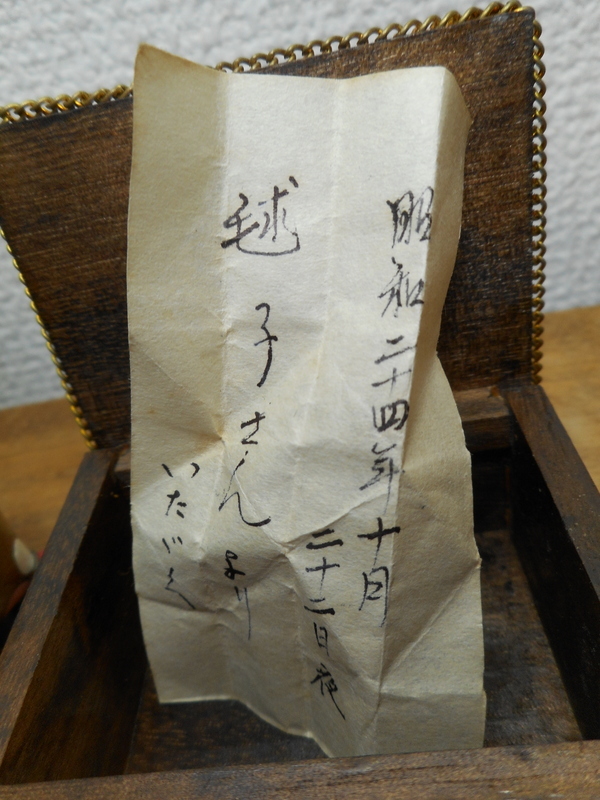 昭和二十四年十月
二十二日夜
毬子さんより
いたゞく